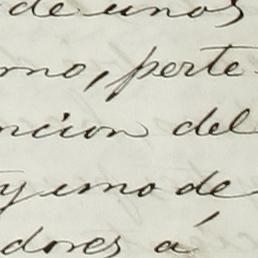 de unos
mo, perte-
ncion del
y uno de
dores á